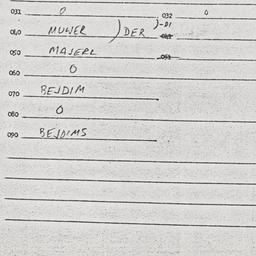 031 0 032 0
040 MULJER ) DER )-DI
050 MAJERL 051
060 0
070 BEJDIM
080 0
090 BEJDIMS